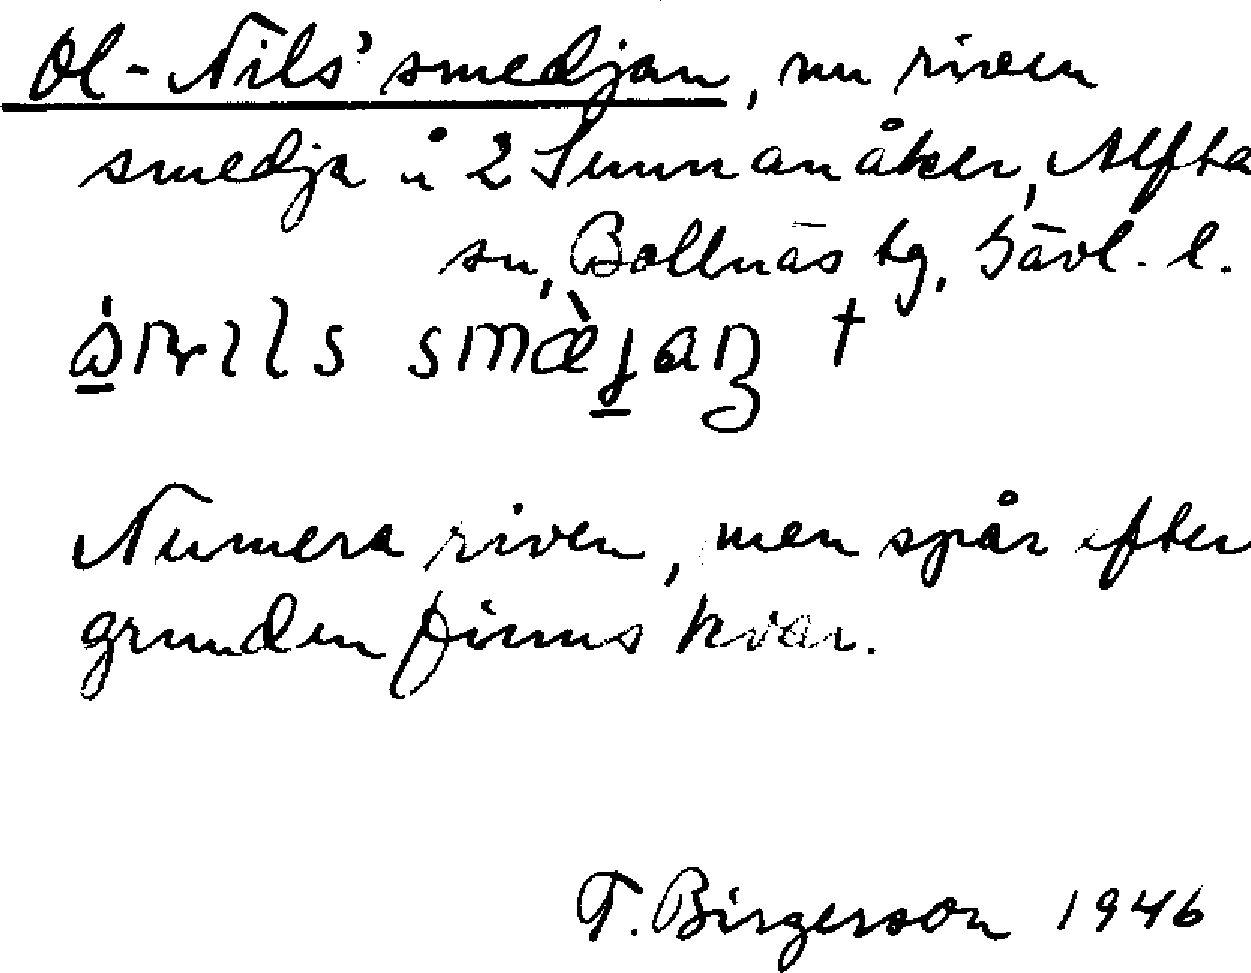 Ol-Nils' smedjan, nu riven
smedja å 2 Sunnanåker, Alfta
sn, Bollnäs tg, Gävl. l.
smæ̀jan †
Numera riven, men spår efter
grunden finns kvar.
T. Birgerson 1946